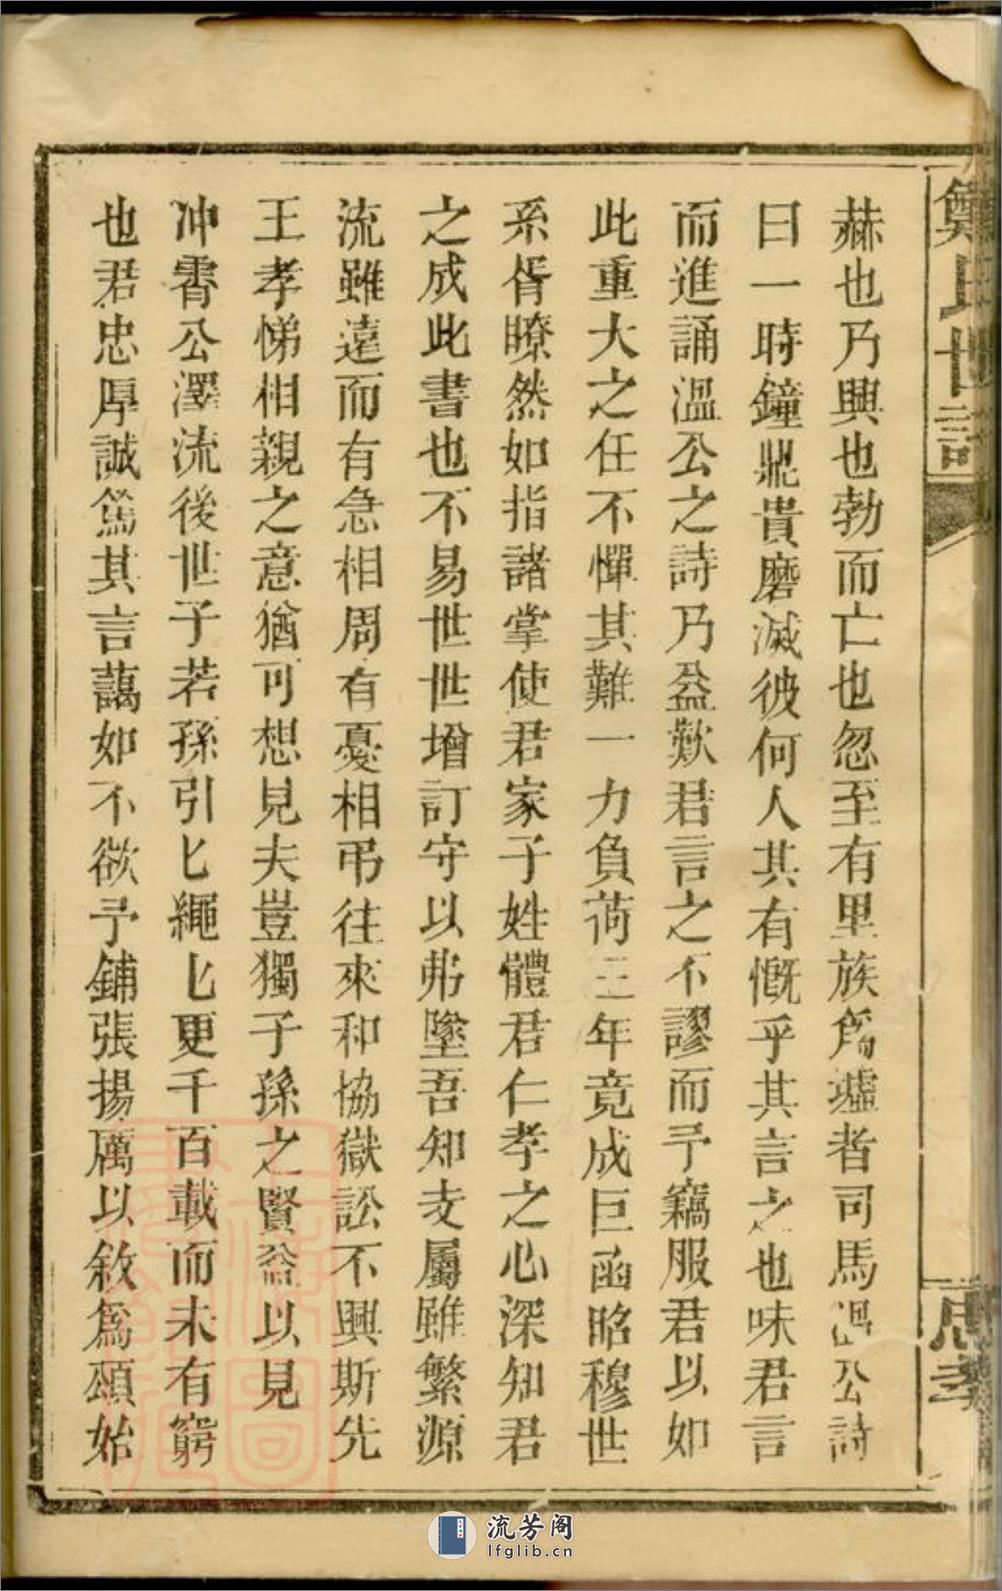 鄭氏世譜
赫也乃興也勃而亡也忽至有里族為墟者司馬溫公詩
曰一時鐘鼎貴磨滅彼何人其有慨乎其言之也味君言
而進誦溫公之詩乃益歎君言之不謬而予竊服君以如
此重大之任不憚其難一力負荷三年竟成巨函昭穆世
系偦瞭然如指諸掌使君家子姓體君仁孝之心深知君
之成此書也不易世世增訂守以弗墜吾知支屬雖繁源
流雖遠而有急相周有憂相弔往來和協獄訟不興斯先
王孝悌相親之意猶可想見夫豈獨子孫之賢益以見
冲霄公澤流後世子若孫引匕繩匕更千百載而未有窮
也君忠厚誠篤其言藹如不欲予鋪張揚厲以敘為頌始
流芳阁
lfglib.cn